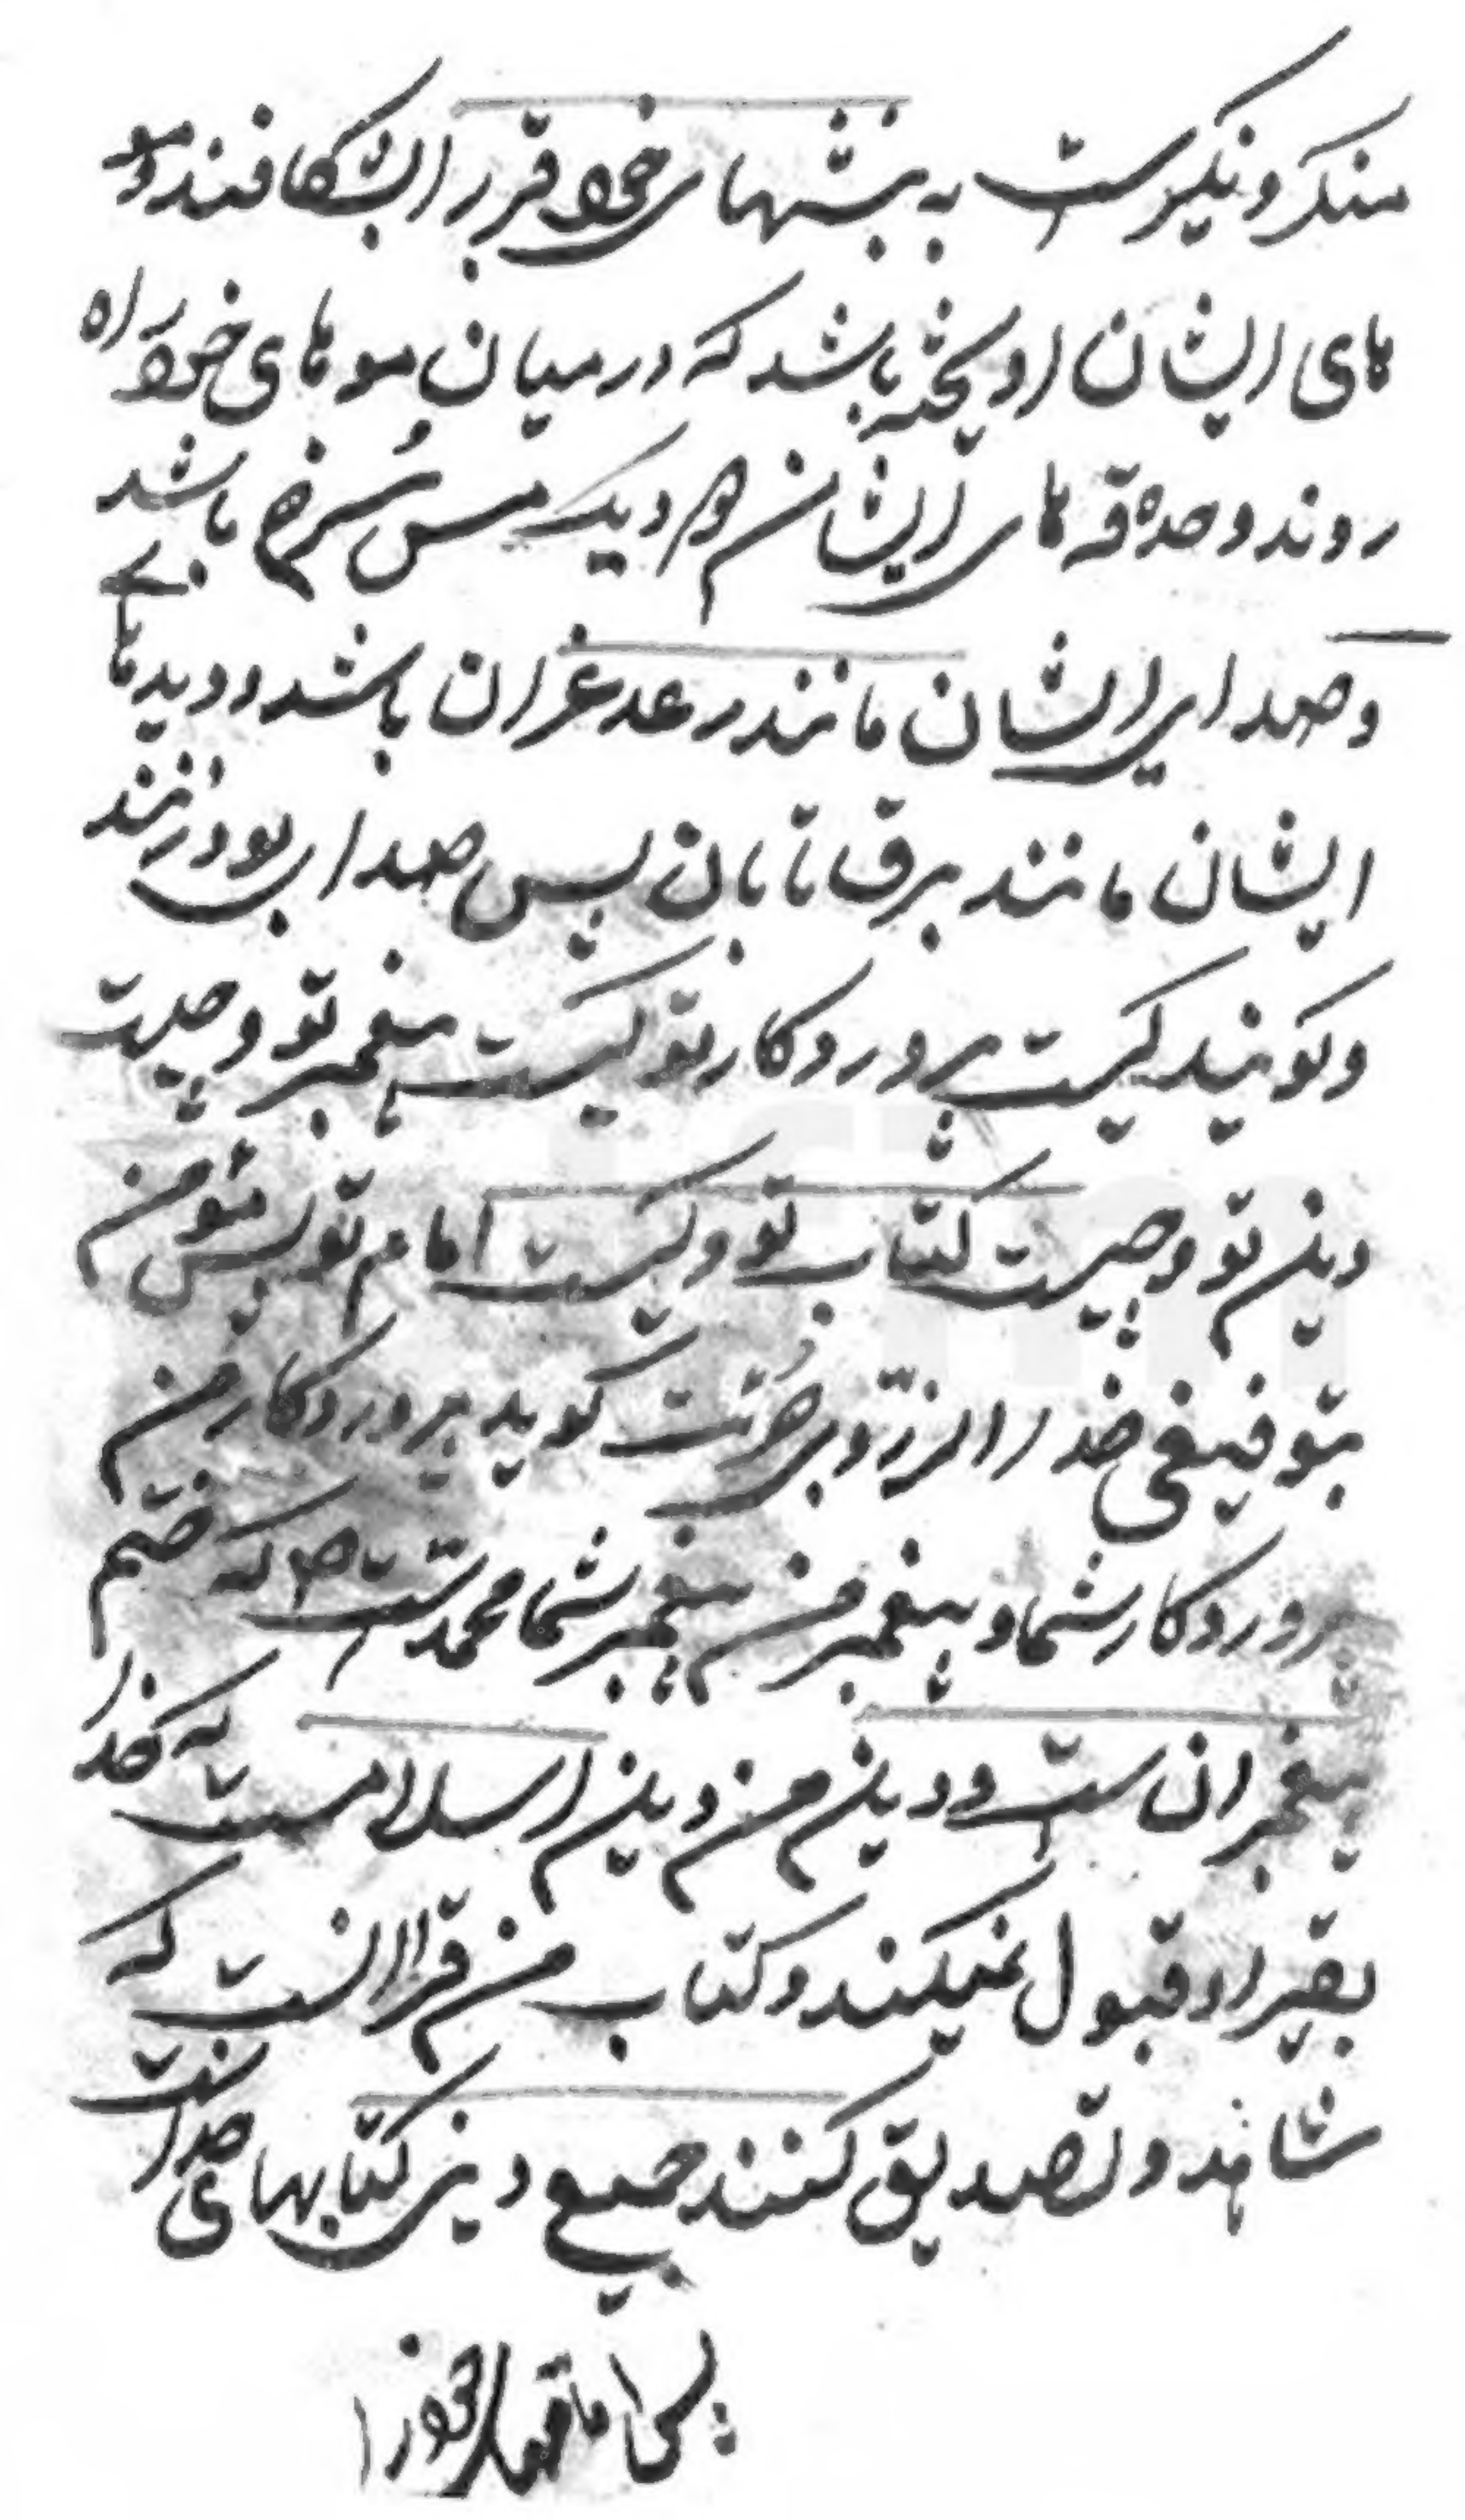 منکر و نکیرست به نیشهای خود قبر را بشکافند و مو
های ایشان اویخته باشد که در میان موهای خود راه
روند و حدقه های ایشان هم دیک مس سرخ باشد
و صدای ایشان مانند رعد غران باشد و دیدهای
ایشان مانند برق تابان پس صدا برو زنند
و کویند کیست پروردکار تو کیست پیغمبر تو و چیست
دین تو و چیست کتاب تو و کیست امام تو پس مؤمن
بتوفیق خدا گوید پروردکار من
پروردکار شما و پیغمبر من پیغمبر شما محمدست که ختم
پیغمبرانست و دین من دین اسلامست که خدا
بغیر او قبول نمیکند و کتاب من قراانست که
شاهد و تصدیق کنند جمیع دین کتابهای خداست
پس اما خود را